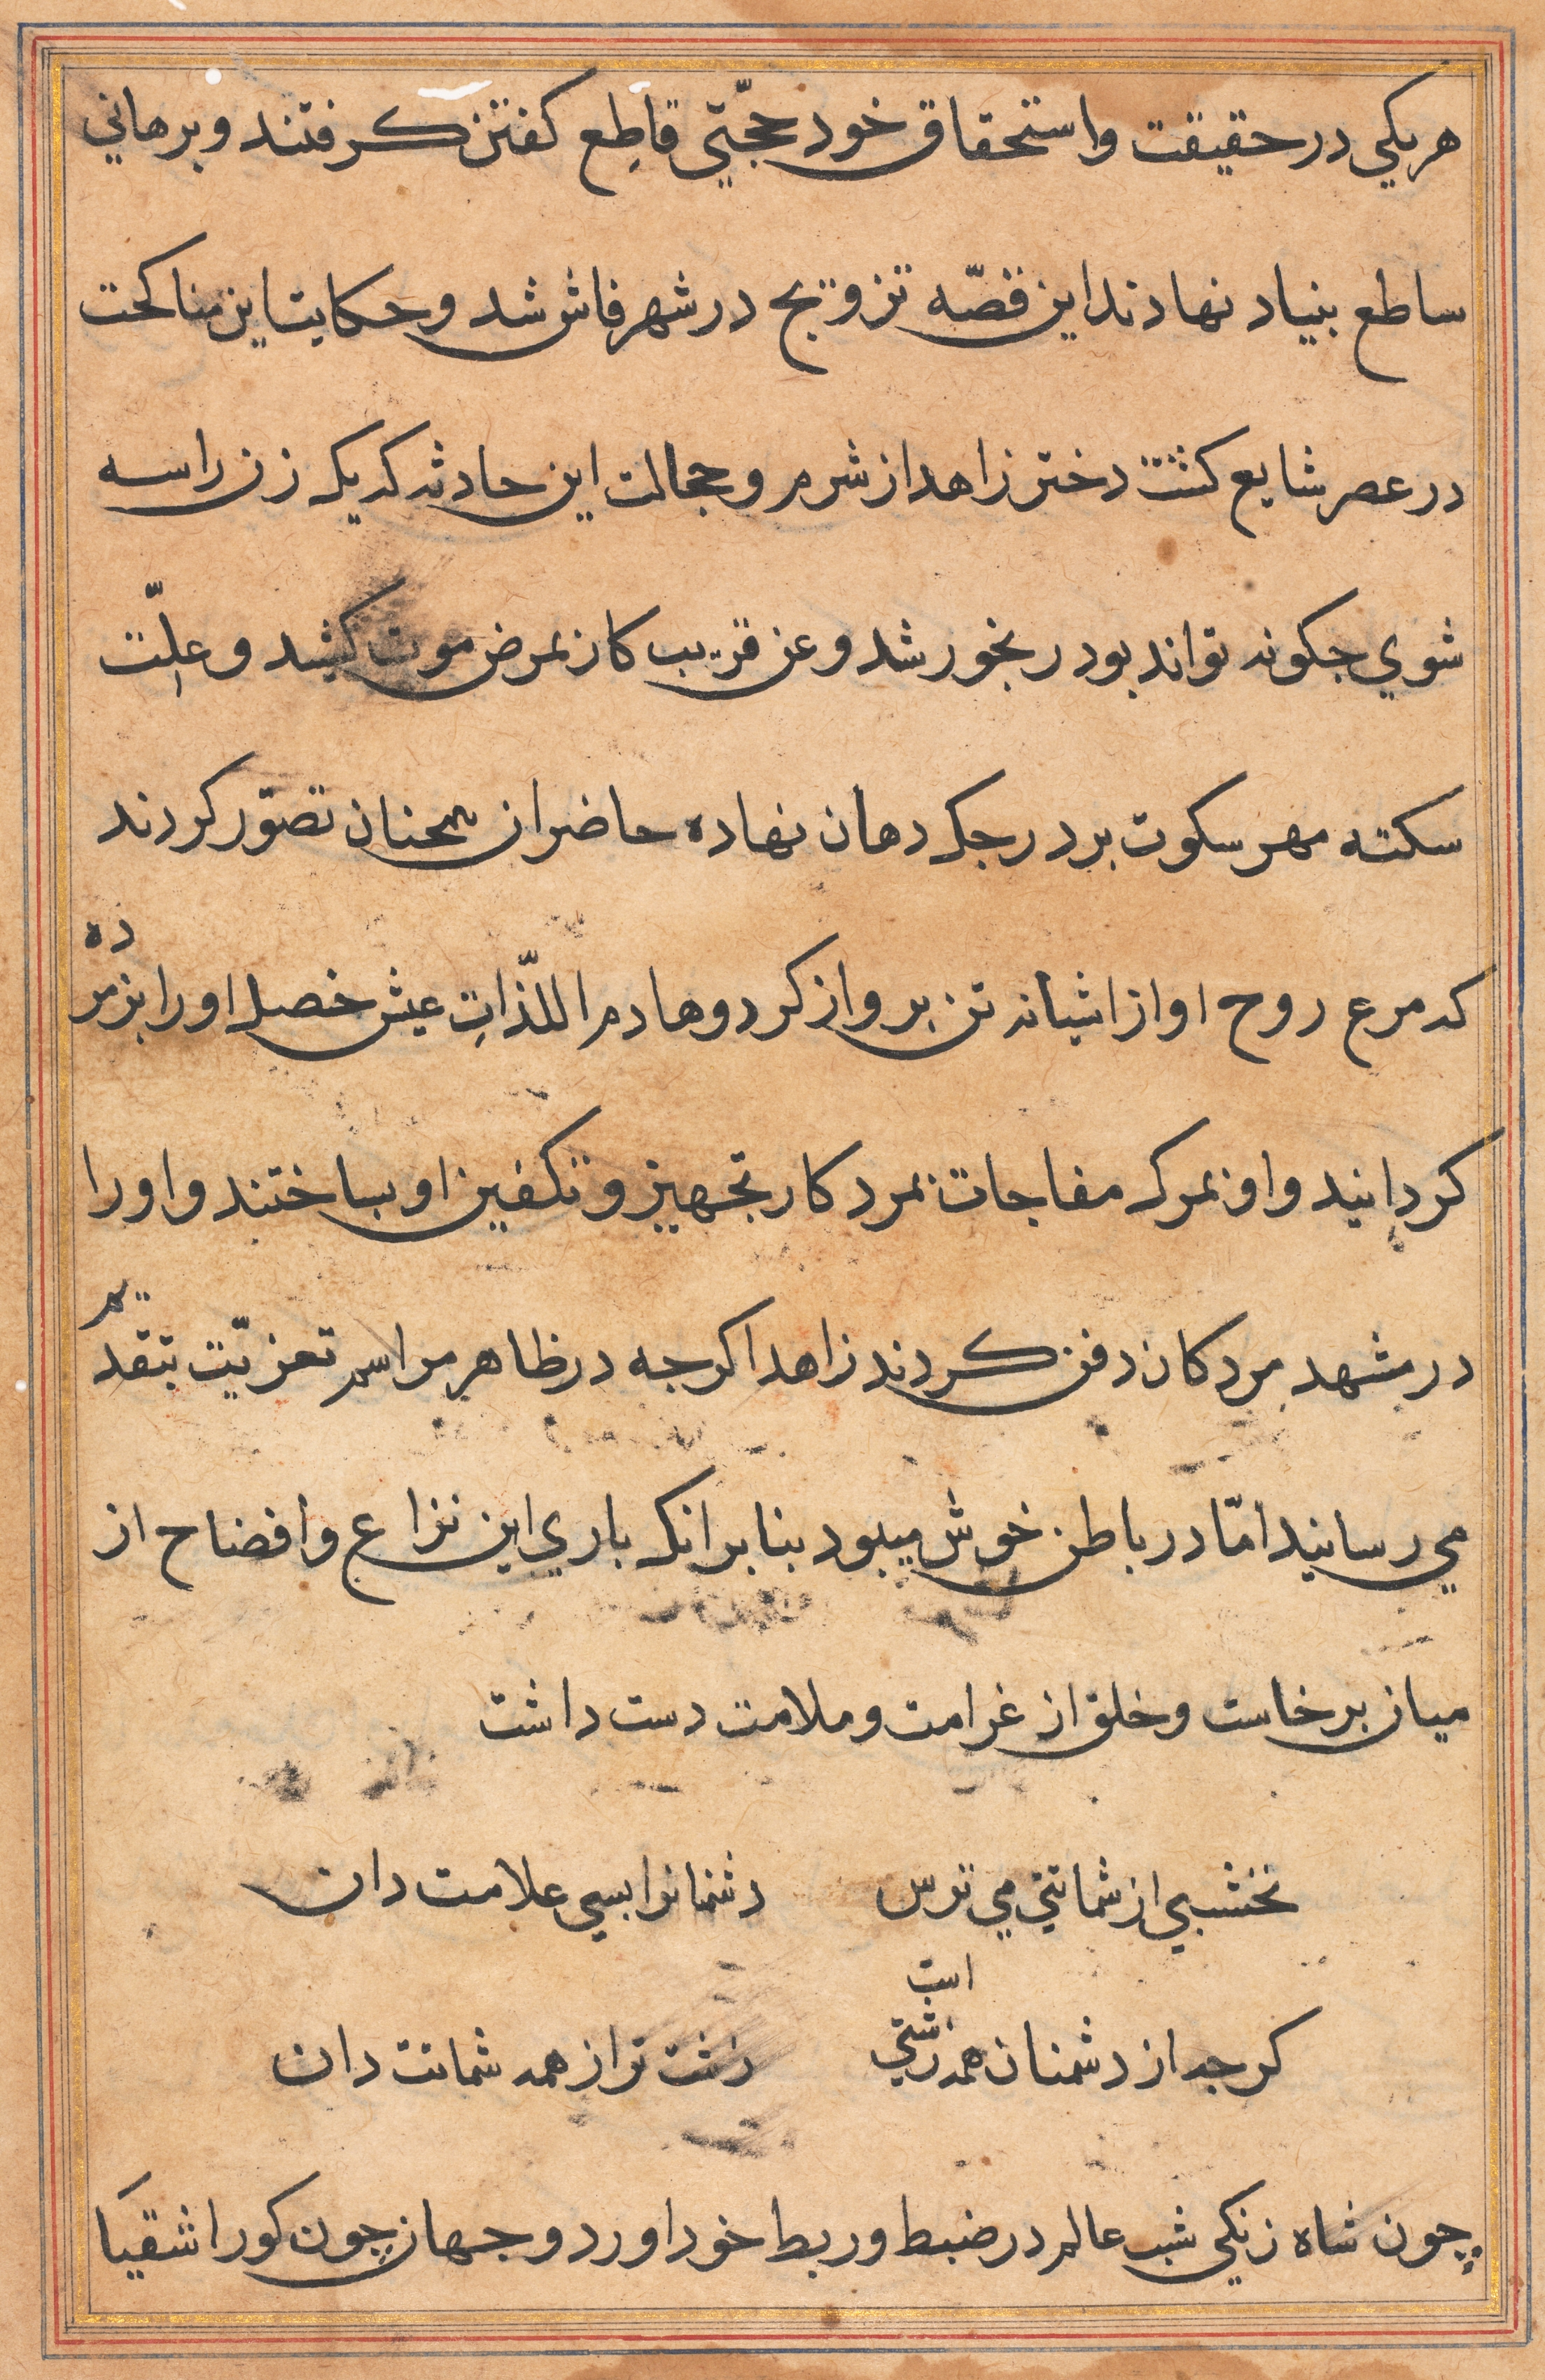 هر یکی در حقیقت و استحقاق خود حجّتی قاطِع کفتن کرفتند و برهانی
ساطع بنیاد نهادند این قصّه تزویج در شهر فاش شد و حکایت این مناکحت
در عصر شایع کشت دختر زاهد از شرم و خجالت این حادثه که یک زن را سه
شوی جکونه تواند بود رنجور شد و عن قریب کار بمرض موت کشید و علّت
سکته مهر سکوت بر درجک دهان نهاده حاضران همچنان تصوّر کردند
که مرغ روح او از اشیانه تن برواز کرد و هادم اللّذاتِ عیش خصل او را بزمرده
کردانید و او بمرک مفاجات بمرد کار تجهیز و تکفین او بساختند و او را
در مشهد مردکان دفن کردند زاهد اکرجه در ظاهر مراسم تعزیّت بتقدیم
می رسانید امّا در باطن خوش میبود بنا بر انک باری این نزاع و افضاح از
میان برخاست و خلق از غرامت و ملامت دست داشت
نخشبی از شماتتی می ترس دشمنانرا بسی علامت دان
کرجه از دشمنان همه زشتی است زشت تر از همه شماتت دان
چون شاه زنکی شب عالم در ضبط و ربط خود اورد و جهان چون کور اشقیَا